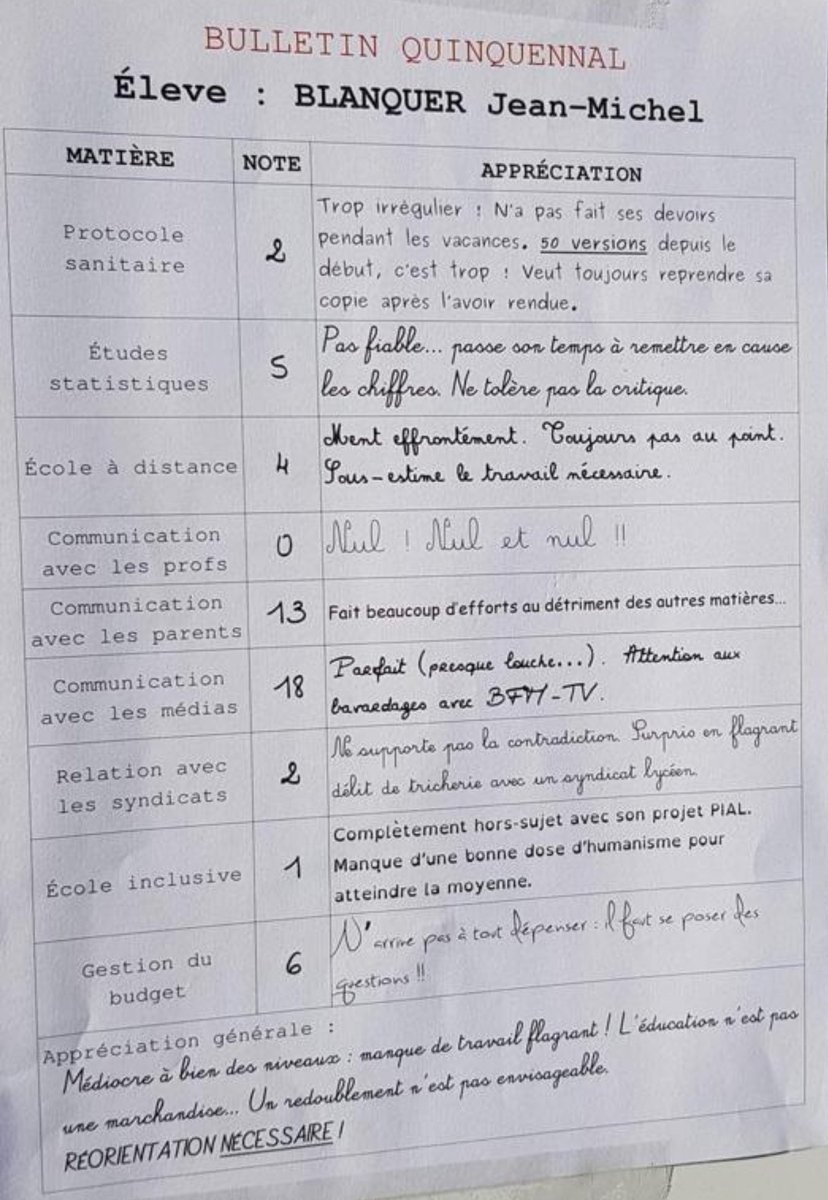 BULLETIN QUINQUENNAL
Éleve : BLANQUER Jean-Michel
MATIÈRE NOTE APPRÉCIATION
Protocole sanitaire
2
Trop irrégulier ! N'a pas fait ses devoirs
pendant les vacances. 50 versions depuis le
début, c'est trop ! Veut toujours reprendre sa
copie après l'avoir rendue.
Études
statistiques
5
Pas fiable... passe son temps à remettre en cause
les chiffres. Ne tolère pas la critique.
École à distance
4
Ment effrontément. Toujours pas au point.
Sous-estime le travail nécessaire.
Communication
avec les profs
0
Nul ! Nul et nul !!
Communication
avec les parents
13
Fait beaucoup d'efforts au détriment des autres matières...
Communication
avec les médias
18
Parfait (presque louche...). Attention aux
bavardages avec BFM-TV.
Relation avec
les syndicats
2
Ne supporte pas la contradiction. Surpris en flagrant
délit de tricherie avec un syndicat lycéen.
École inclusive
1
Complètement hors-sujet avec son projet PIAL.
Manque d'une bonne dose d'humanisme pour
atteindre la moyenne.
Gestion du
budget
6
N'arrive pas à tout dépenser : il faut se poser des
questions !!
Appréciation générale :
Médiocre à bien des niveaux : manque de travail flagrant ! L'éducation n'est pas
une marchandise... Un redoublement n'est pas envisageable.
RÉORIENTATION NÉCESSAIRE !